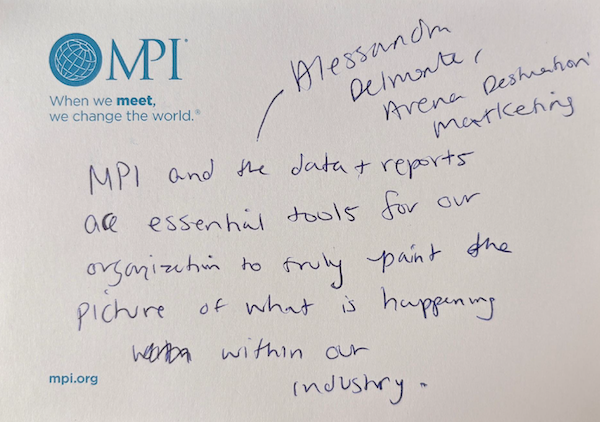 MPI
When we meet,
we change the world.®
Alessandra
Delmonte,
Arena Destination
Marketing
MPI and the data + reports
are essential tools for our
organization to truly paint the
picture of what is happening
within our
industry.
mpi.org